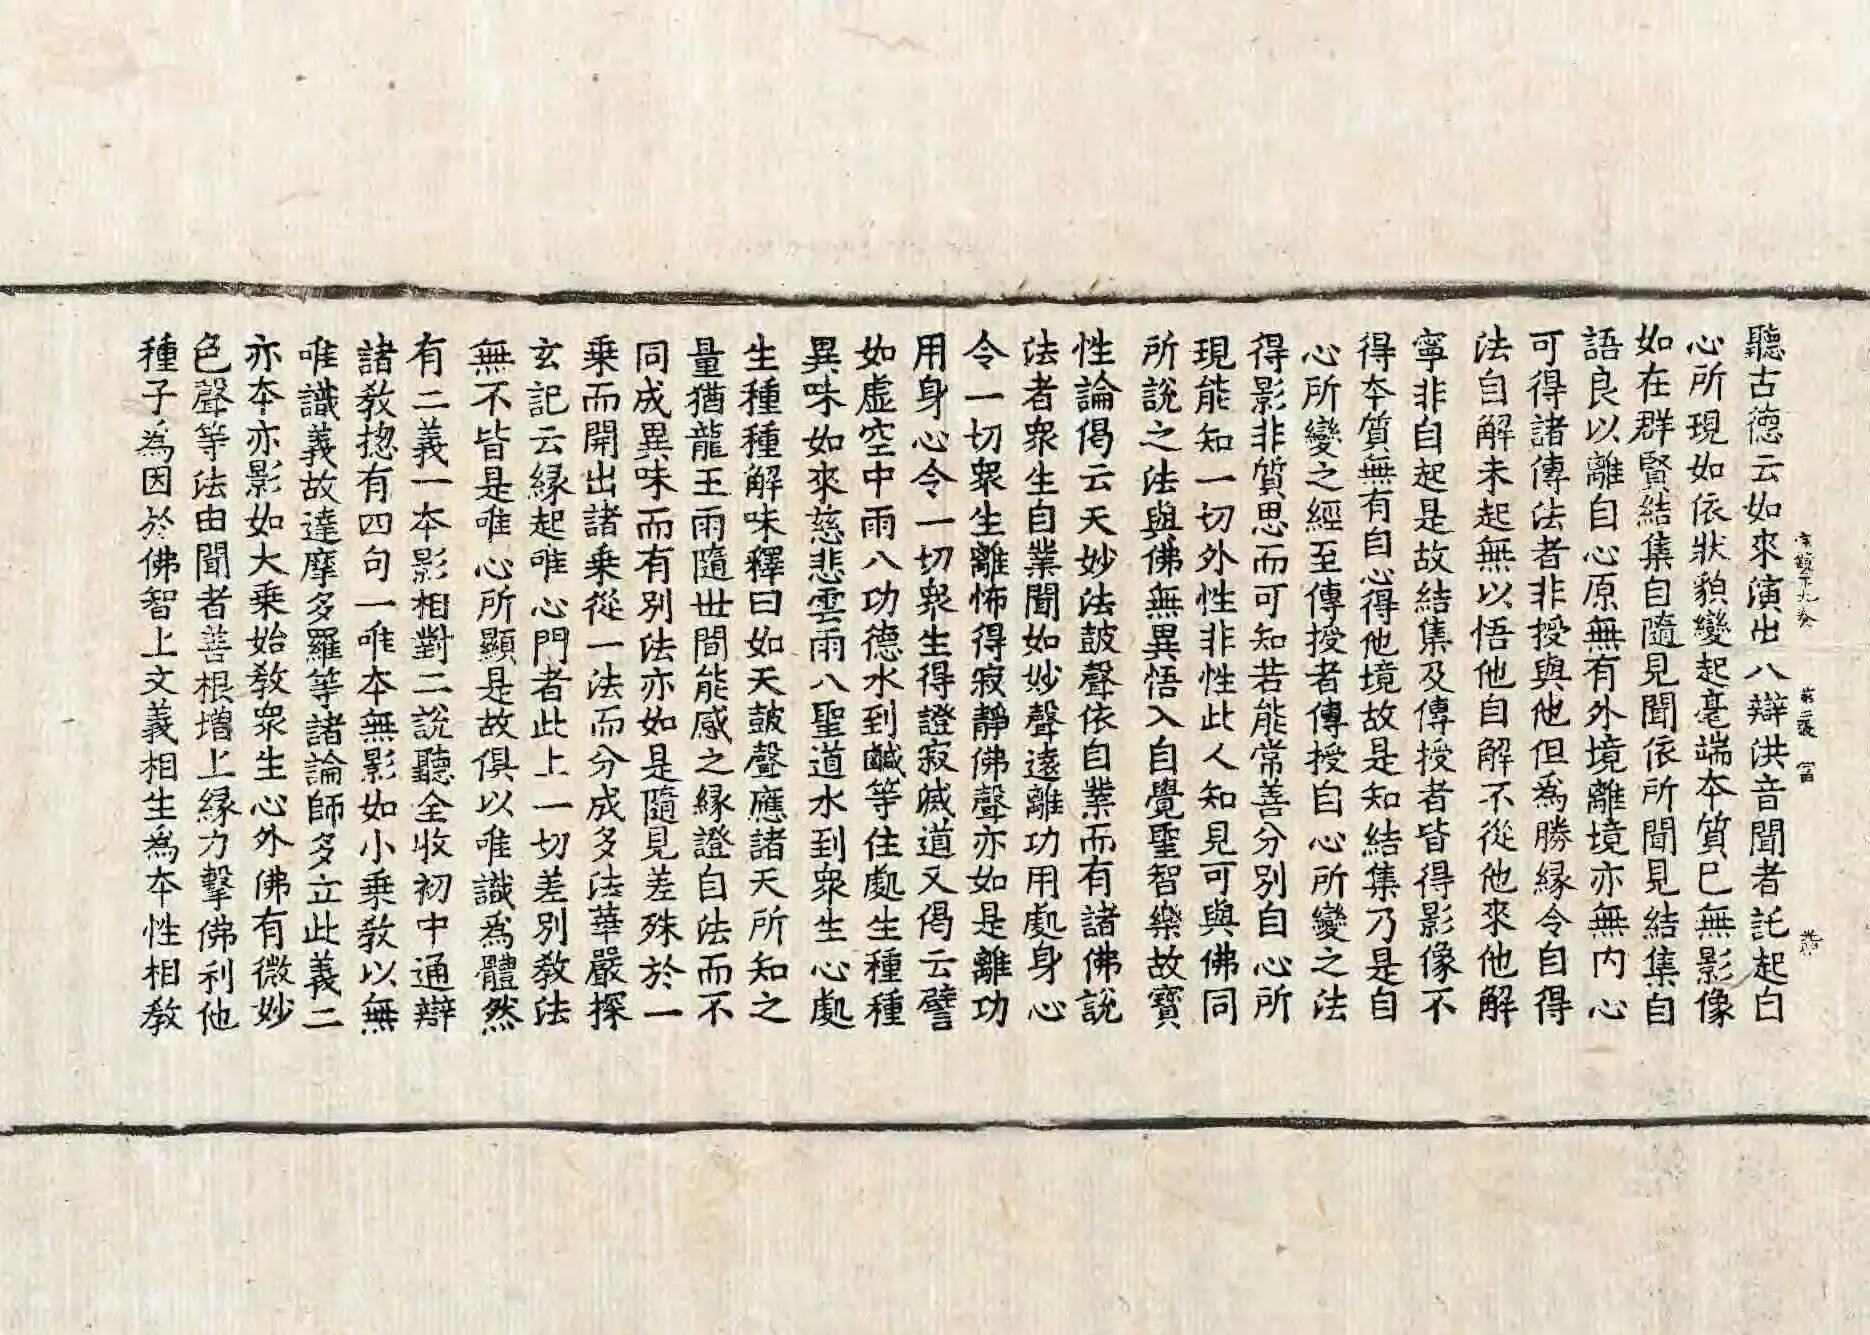 聽古德云如來演出八辯洪音聞者託起自
心所現如依狀貌變起毫端本質已無影像
如在群賢結集自隨見聞依所聞見結集自
語良以離自心原無有外境離境亦無內心
可得諸傳法者非授與他但爲勝縁令自得
法自解未起無以悟他自解不從他來他解
寧非自起是故結集及傳授者皆得影像不
得本質無有自心得他境故是知結集乃是自
心所變之經至傳授者傳授自心所變之法
得影非質思而可知若能常善分別自心所
現能知一切外性非性此人知見可與佛同
所說之法與佛無異悟入自覺聖智樂故寶
性論偈云天妙法鼓聲依自業而有諸佛說
法者衆生自業聞如妙聲遠離功用處身心
令一切衆生離怖得寂靜佛聲亦如是離功
用身心令一切衆生得證寂滅道又偈云譬
如虛空中雨八功德水到鹹等住處生種種
異味如來慈悲雲雨八聖道水到衆生心處
生種種解味釋曰如天鼓聲應諸天所知之
量猶龍王雨隨世間能感之縁證自法而不
同成異味而有別法亦如是隨見差殊於一
乘而開出諸乘從一法而分成多法華嚴探
玄記云縁起唯心門者此上一切差別教法
無不皆是唯心所顯是故俱以唯識爲體然
有二義一本影相對二說聽全收初中通辯
諸教揔有四句一唯本無影如小乘教以無
唯識義故達摩多羅等諸論師多立此義二
亦本亦影如大乘始教衆生心外佛有微妙
色聲等法由聞者善根增上縁力擊佛利他
種子爲因於佛智上文義相生爲本性相教